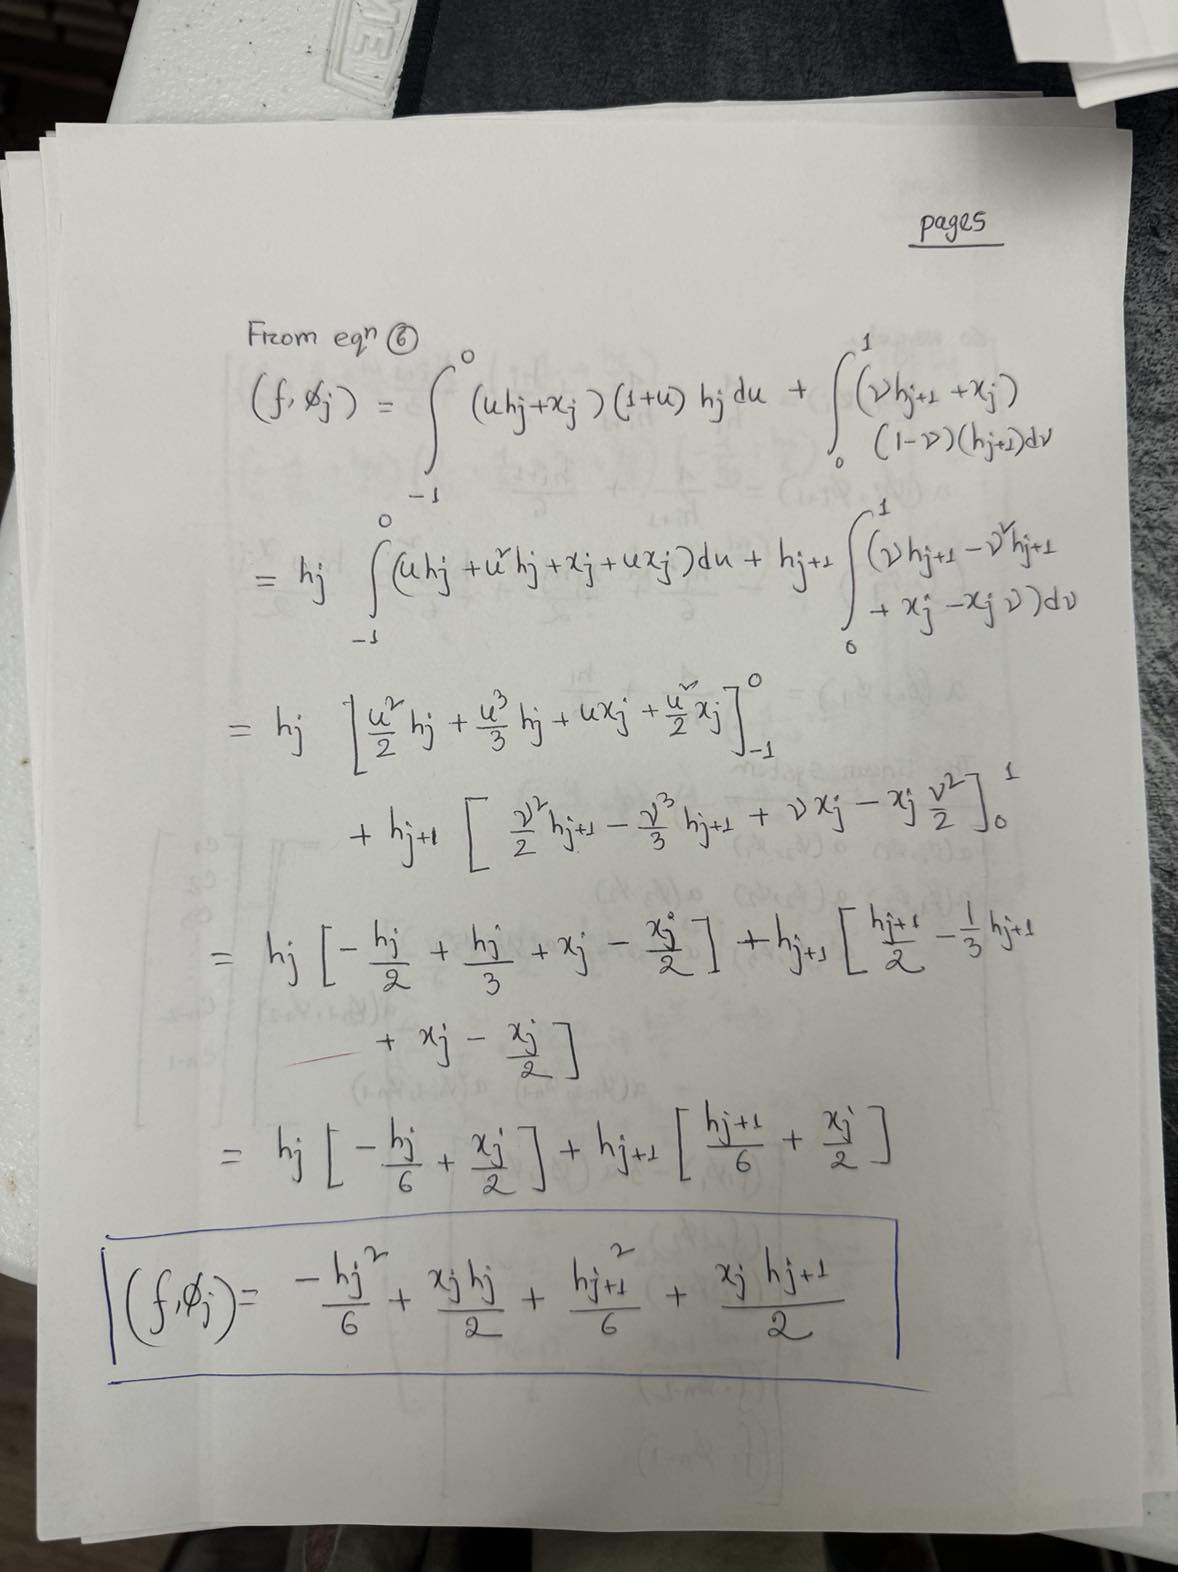 ME
pages
From eqⁿ ⑥
(f, ϕj) = ∫_{-1}^{0} (uhj+xj)(1+u) hj du + ∫_{0}^{1} (νhj+1 +xj)
(1-ν)(hj+1)dν
= hj ∫_{-1}^{0} (uhj +u²hj +xj +uxj)du + hj+1 ∫_{0}^{1} (νhj+1 -ν²hj+1
+ xj -xj ν)dν
= hj [u²/2 hj + u³/3 hj + uxj + u²/2 xj]_{-1}^{0}
+ hj+1 [ν²/2 hj+1 - ν³/3 hj+1 + νxj - xj ν²/2]_{0}^{1}
= hj [-hj/2 + hj/3 + xj - xj/2] + hj+1 [hj+1/2 - 1/3 hj+1
+ xj - xj/2]
= hj [-hj/6 + xj/2] + hj+1 [hj+1/6 + xj/2]
(f,ϕj)= -hj²/6 + xj hj/2 + hj+1²/6 + xj hj+1/2